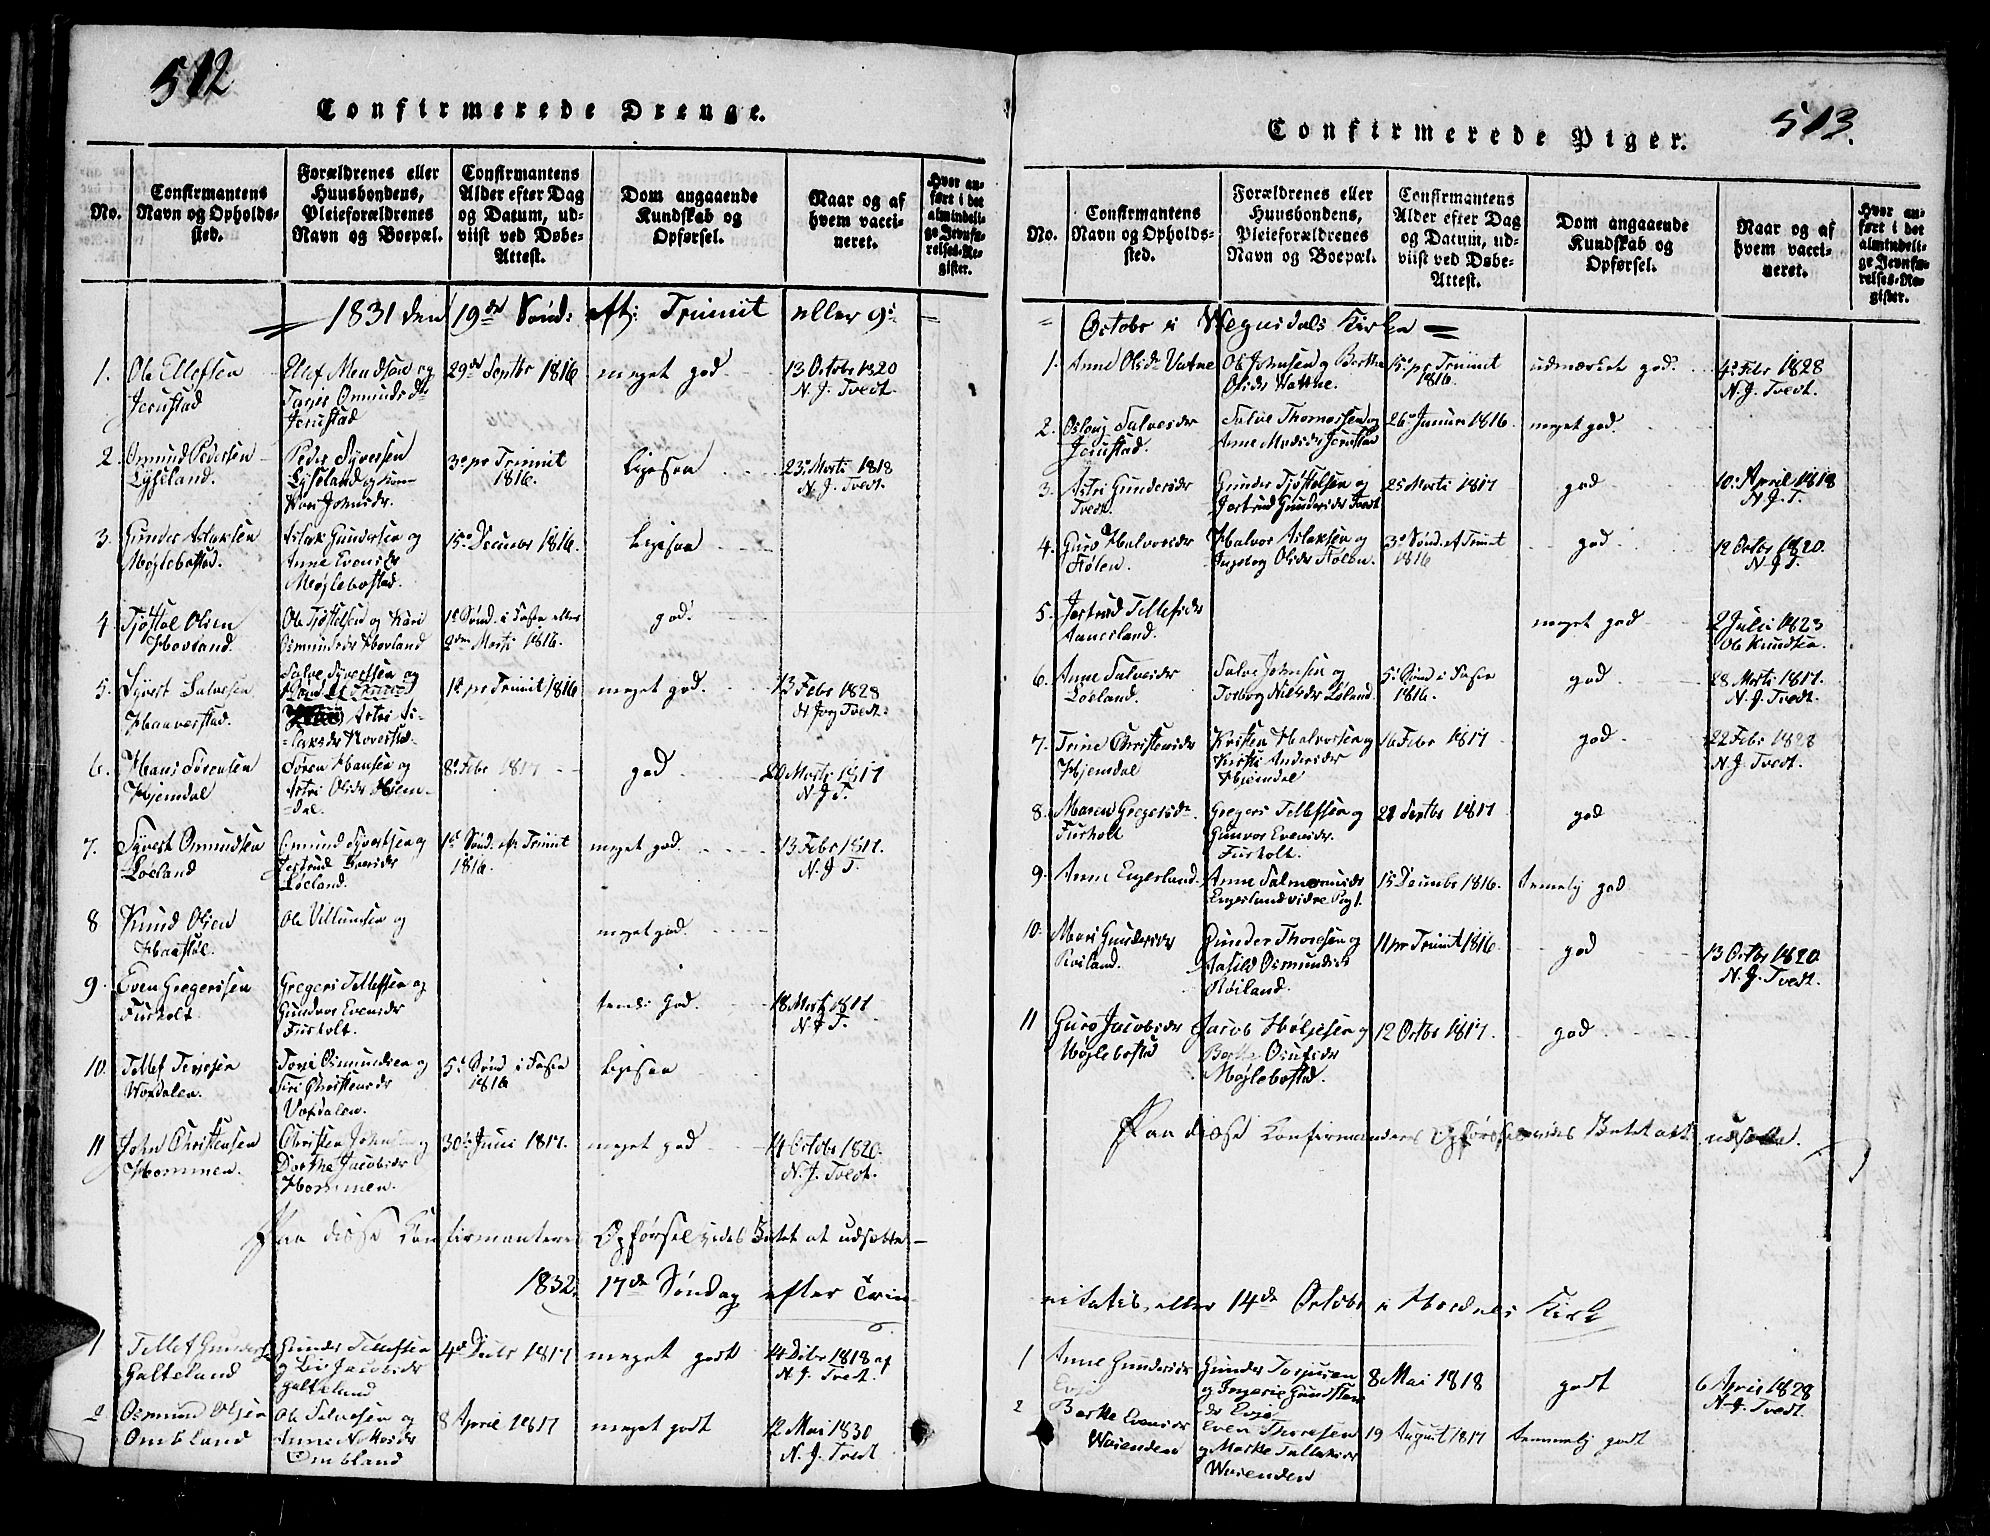 512
Confirmerede Drenge.
No.
Confirmantens
Navn og Opholds-
sted.
Forældrenes eller
Huusbondens,
Pleieforældrenes
Navn og Boepæl.
Confirmantens
Alder efter Dag
og Datum, ud-
viist ved Døbe-
Attest.
Dom angaaende
Kundskab og
Opførsel.
Naar og af
hvem vacci-
neret.
Hvor an-
ført i det
almindeli-
ge Jevnfø-
relses-Re-
gister.
1831 den 19de Sönd: eft: Trinit eller 9:
1. Ole Ellefsen
Jerustad
Ellef Mendsen og
Omunds dr
Jerustad
29de Septbr 1816
meget god
13 Octobr 1820
N. J. Tvedt.
2. Omund Pedersen
Lyseland.
Peder Syversen
Lyseland og
Johnsdr.
3die p: Trinit
1816.
Ligesaa
23. Marti 1818
N. J. Tvedt.
3. Gunder Aslaksen
Møglebostad.
Aslak Gundersen og
Anne Evensdr
Møglebostad.
15de Decembr 1816.
Ligesaa
4. Tjøstol Olsen
Hovland.
Ole Tjøstelsen og Kari
Osmundsdr Hovland
1e Sönd. i Faste eller
Marti 1816.
god
5. Syvert Salvesen
Haaverstad.
Salve Syvertsen og
Astri As-
-laksdr Hoverstad
1e p: Trinit 1816
meget god.
13 Febr 1828
N. Jørg Tvedt.
6. Hans Sørensen
Hjemdal
Søren Hansen og
Astri Olsdr Hjem-
-dal.
8. Febr 1817
god
20 Marti 1817
N. J. T.
7. Syvert Omundsen
Løeland
Omund Syvertsen og
Jertrud
Løeland.
1e Sönd. eft Trinit
1816.
meget god.
13 Febr 1817.
N. J. T.
8 Knud Olsen
Ole Villumsen og
meget god.
9. Even Gregersen
Furholt
Gregers Tellefsen og
Gundvor Evensdr
Furholt.
god.
18 Marti 1817
N. J. T.
10. Tellef Torjesen
Torje Osmundsen og
Siri Christensdr
5e Sönd i Faste
1816
Ligesaa
11 John Christensen
Hommen.
Christen Johnsen og
Dorthe Jacobsdr
Hommen.
30 Juni 1817.
meget god
14 Octobr 1820.
N. J. Tvedt.
Paa disse Confirmanters Opførsel vides Intet at udsætte
1832. 17de Søndag efter Trin-
1 Tellef Gunders
Galteland
Gunder Tellefsen
og Liv Jacobsdr
Galteland
4de Decbr 1817
meget godt
14 Dcbr 1818 af
N. J. Tvedt.
2 Osmund Olsen
Ombland
Ole Salvesen og
Anne
Ombland
8 April 1817
meget godt
12 Mai 1830
N. J. Tvedt
513.
Confirmerede Piger.
No.
Confirmantens
Navn og Opholds-
sted.
Forældrenes eller
Huusbondens,
Pleieforældrenes
Navn og Boepæl.
Confirmantens
Alder efter Dag
og Datum, ud-
viist ved Døbe-
Attest.
Dom angaaende
Kundskab og
Opførsel.
Naar og af
hvem vacci-
neret.
Hvor an-
ført i det
almindeli-
ge Jevnfø-
relses-Re-
gister.
Octobr i Vegusdals Kirke
1. Anne Olsdr Vatne
Ole Johnsen og Berthe
Olsdr Vatne.
15e p: Trinit
1816.
udmærket god.
4. Febr 1828
N. J. Tvedt.
2. Oslaug Salvesdr
Jerustad.
Salve Thomassen og
Anne Madsdr Jerustad
26. Januri 1816.
meget god.
3. Astri Gundersdr
Tvedt.
Gunder Tjöstelsen og
Jertrud Gundersdr Tvedt
25 Marti 1817
god
10. April 1818
N. J. T.
4. Guro Halvorsdr
Stølen.
Halvor Aslaksen og
Ingebor Olsdr Stølen.
3e Sönd. ef Trinit
1816
god
12 Octbr 1820.
N. J. T.
5. Jertrud Tellefsdr
meget god
2 Juli 1823
Ole Knudsen.
6. Anne Salvesdr
Løeland.
Salve Johnsen og
Torborg Nilsdr Løland.
5e Sönd i Faste
1816.
god
28 Marti 1817.
N. J. Tvedt.
7. Trine Christensdr
Hjemdal
Kristen Halvorsen og
Kirsti Andersdr
Hjemdal
16 Febr 1817
god
22 Febr 1828
N. J. Tvedt.
8. Maren Gregersdr
Furholt
Gregers Tellefsen og
Gunvor Evensdr.
Furholt.
21 Septbr 1817
god
9. Anne Engesland.
Anne Salmonsdr
Engesland
15 Decembr 1816.
temmelig god
10. Mari Gundersdr
Røiland.
Gunder Thorsen og
Aasild Osmundsdr
Røiland.
11 p Trinit 1816.
god
13 Octbr 1820
N. J. Tvedt.
11 Guro Jacobsdr
Møglebostad
Jacob Høljesen og
Berthe
Møglebostad.
12 Octbr 1817.
god
Paa disse Confirmanders Opførsel vides Intet at udsætte.
itatis, eller 14de Octobr i Hordnes Kirke
1 Anne Gundersdr
Evje
Gunder Torjusen
og Ingerie Gundsten
dr Evje
8 Mai 1818
godt
6 April 1828
N. J. Tvedt.
2 Berthe Evensdr
Waienden
Even Thoresen
og Marthe
Waienden
19 August 1817
temmelig godt